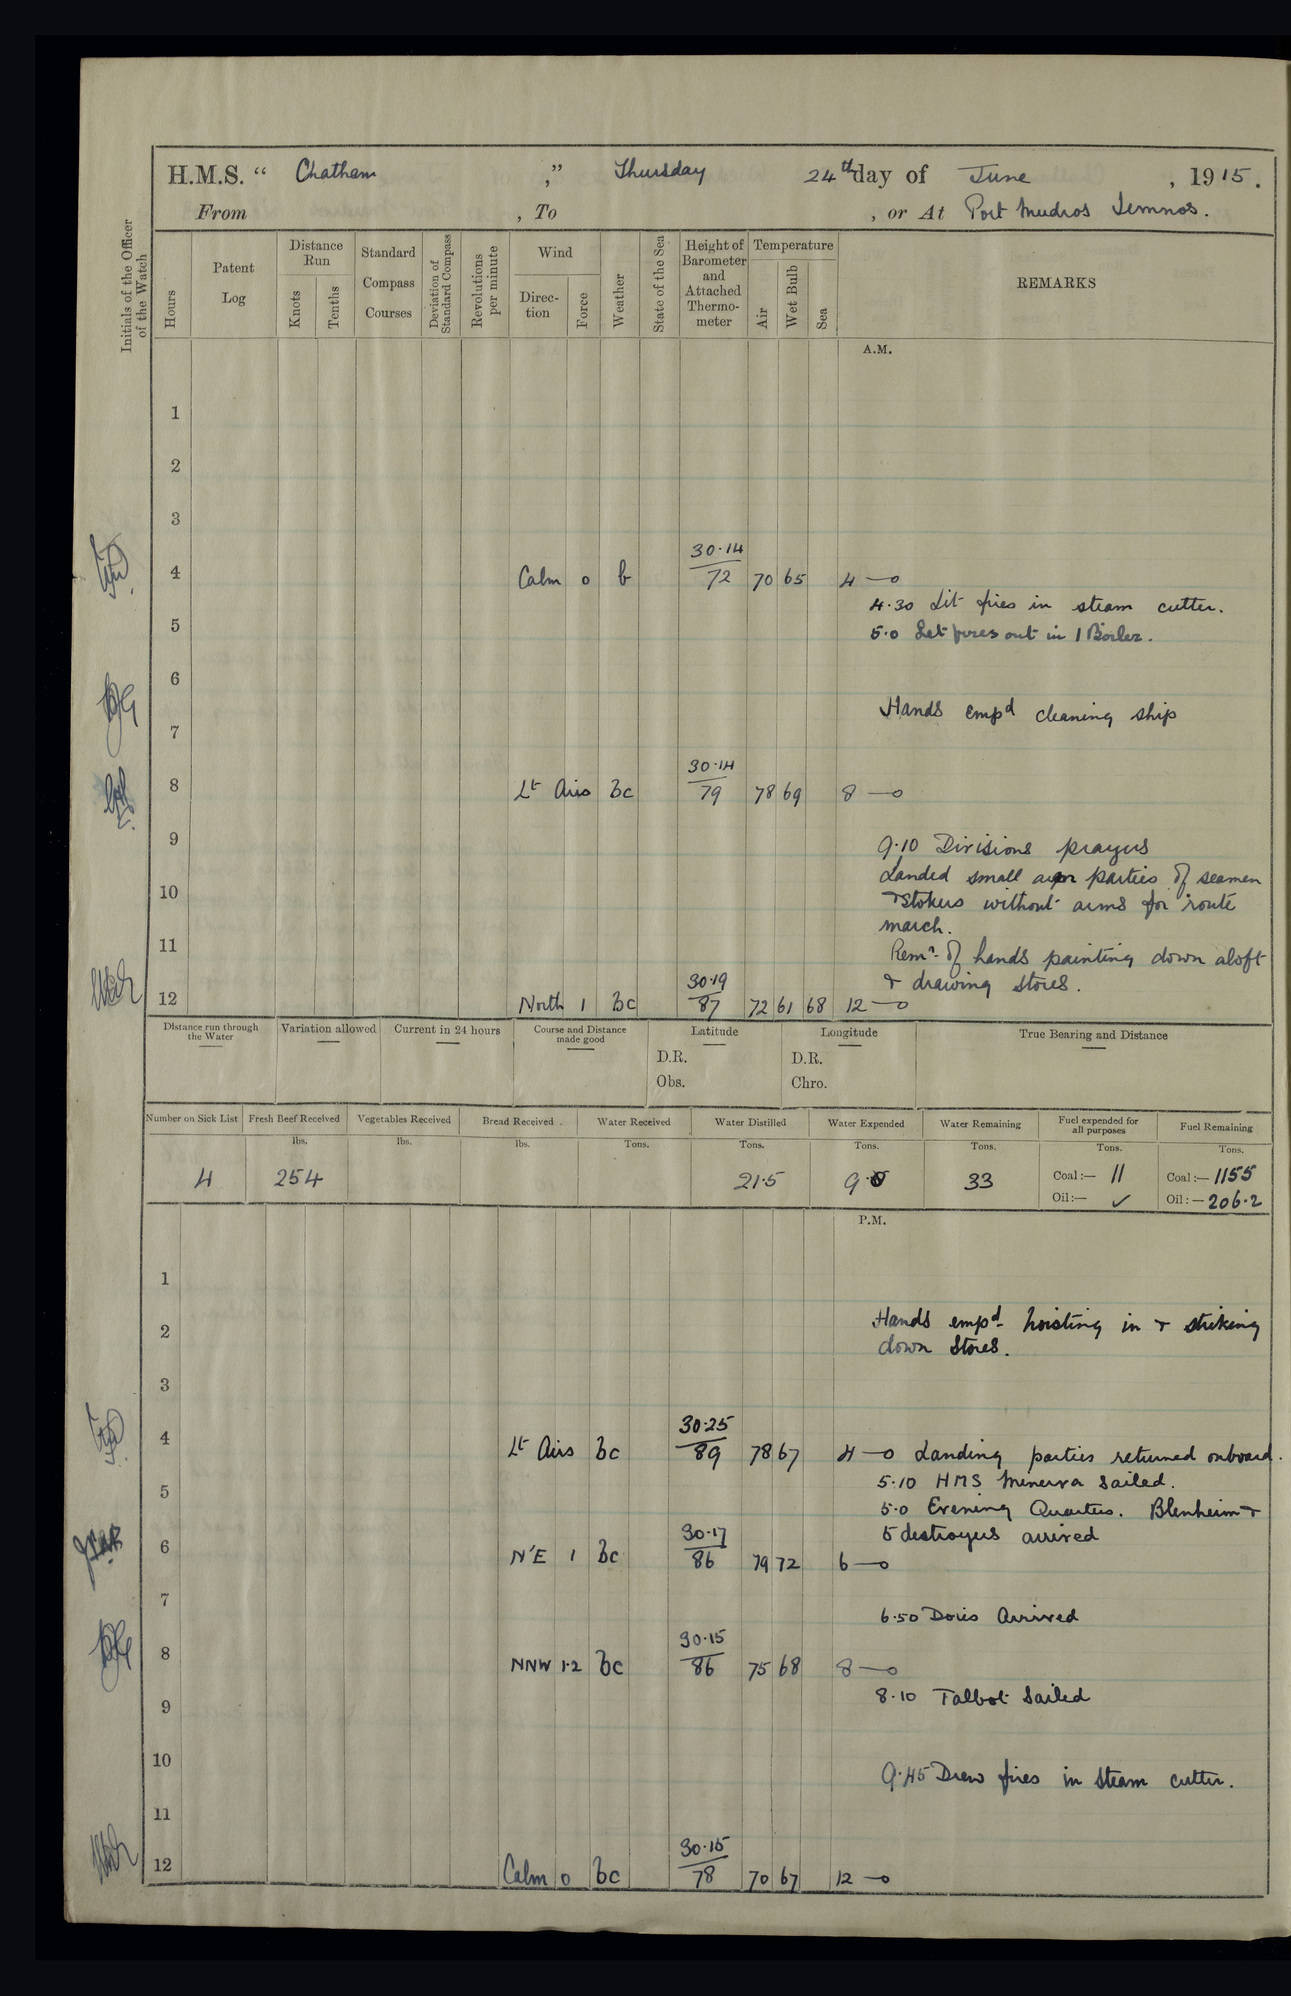 H.M.S. “ Chatham ,” Thursday 24th day of June , 1915 .
From , To , or At Port Mudros Lemnos .
Initials of the Officer of the Watch
Hours
Patent Log
Distance Run
Knots
Tenths
Standard Compass Courses
Deviation of Standard Compass
Revolutions per minute
Wind
Direc- tion
Force
Weather
State of the Sea
Height of Barometer and Attached Thermo- meter
Temperature
Air
Wet Bulb
Sea
REMARKS
A.M.
1
2
3
30·14
4 Calm 0 b 72 70 65 4 —o
4·30 Lit fires in steam cutter.
5 5·0 Let fires out in 1 Boiler.
6
Hands empd cleaning ship
7
30·14
8 Lt Airs bc 79 78 69 8 —o
9 9·10 Divisions prayers
Landed small arm parties of seamen
10 & Stokers without arms for route
march.
11 Remr of hands painting down aloft
30·19 & drawing stores.
12 North 1 bc 87 72 61 68 12 —o
Distance run through the Water
Variation allowed
Current in 24 hours
Course and Distance made good
Latitude
D.R.
Obs.
Longitude
D.R.
Chro.
True Bearing and Distance
Number on Sick List Fresh Beef Received Vegetables Received Bread Received Water Received Water Distilled Water Expended Water Remaining Fuel expended for all purposes Fuel Remaining
lbs. lbs. lbs. Tons. Tons. Tons. Tons. Tons. Tons.
4 254 21·5 33 Coal :— 11 Coal :— 1155
Oil :— ✓ Oil :— 206·2
P.M.
1
Hands empd hoisting in & striking
2 down stores.
3
30·25
4 Lt Airs bc 89 78 67 4 —o Landing parties returned onboard.
5·10 HMS Minerva sailed.
5 5·0 Evening Quarters. Blenheim &
30·17 5 destroyers arrived
6 N'E 1 bc 86 79 72 6 —o
7 6·50 Doris Arrived
30·15
8 NNW 1·2 bc 86 75 68 8 —o
8·10 Talbot Sailed
9
10 9·45 Drew fires in steam cutter.
11
30·15
12 Calm 0 bc 78 70 67 12 —o